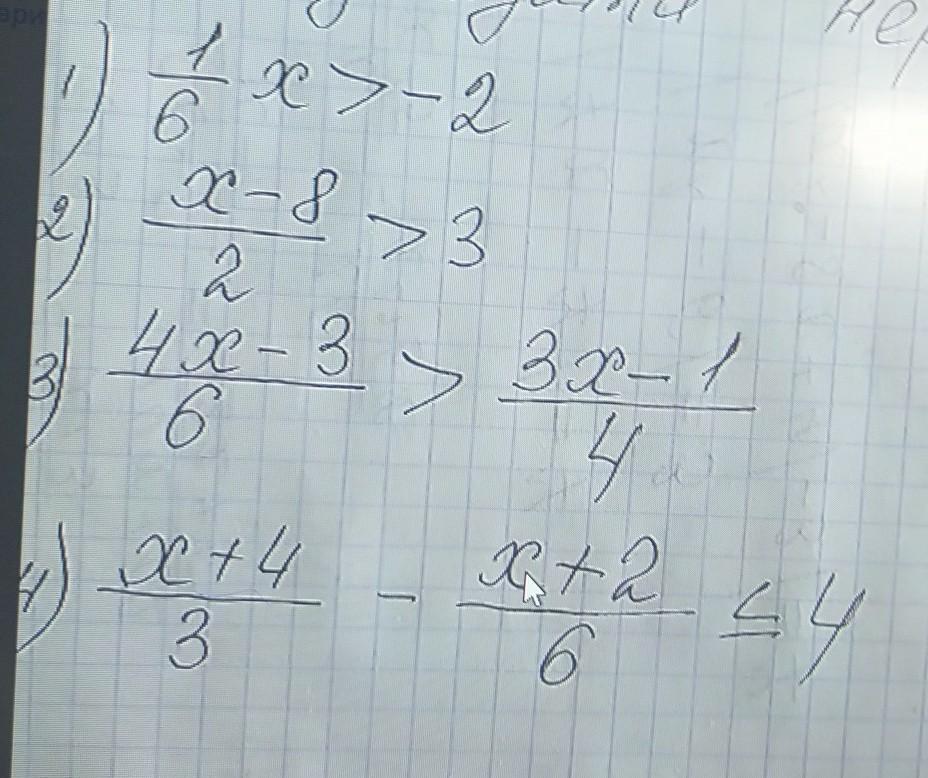 1) 1/6 x > -2
2) (x-8)/2 > 3
3) (4x-3)/6 > (3x-1)/4
4) (x+4)/3 - (x+2)/6 ≤ 4